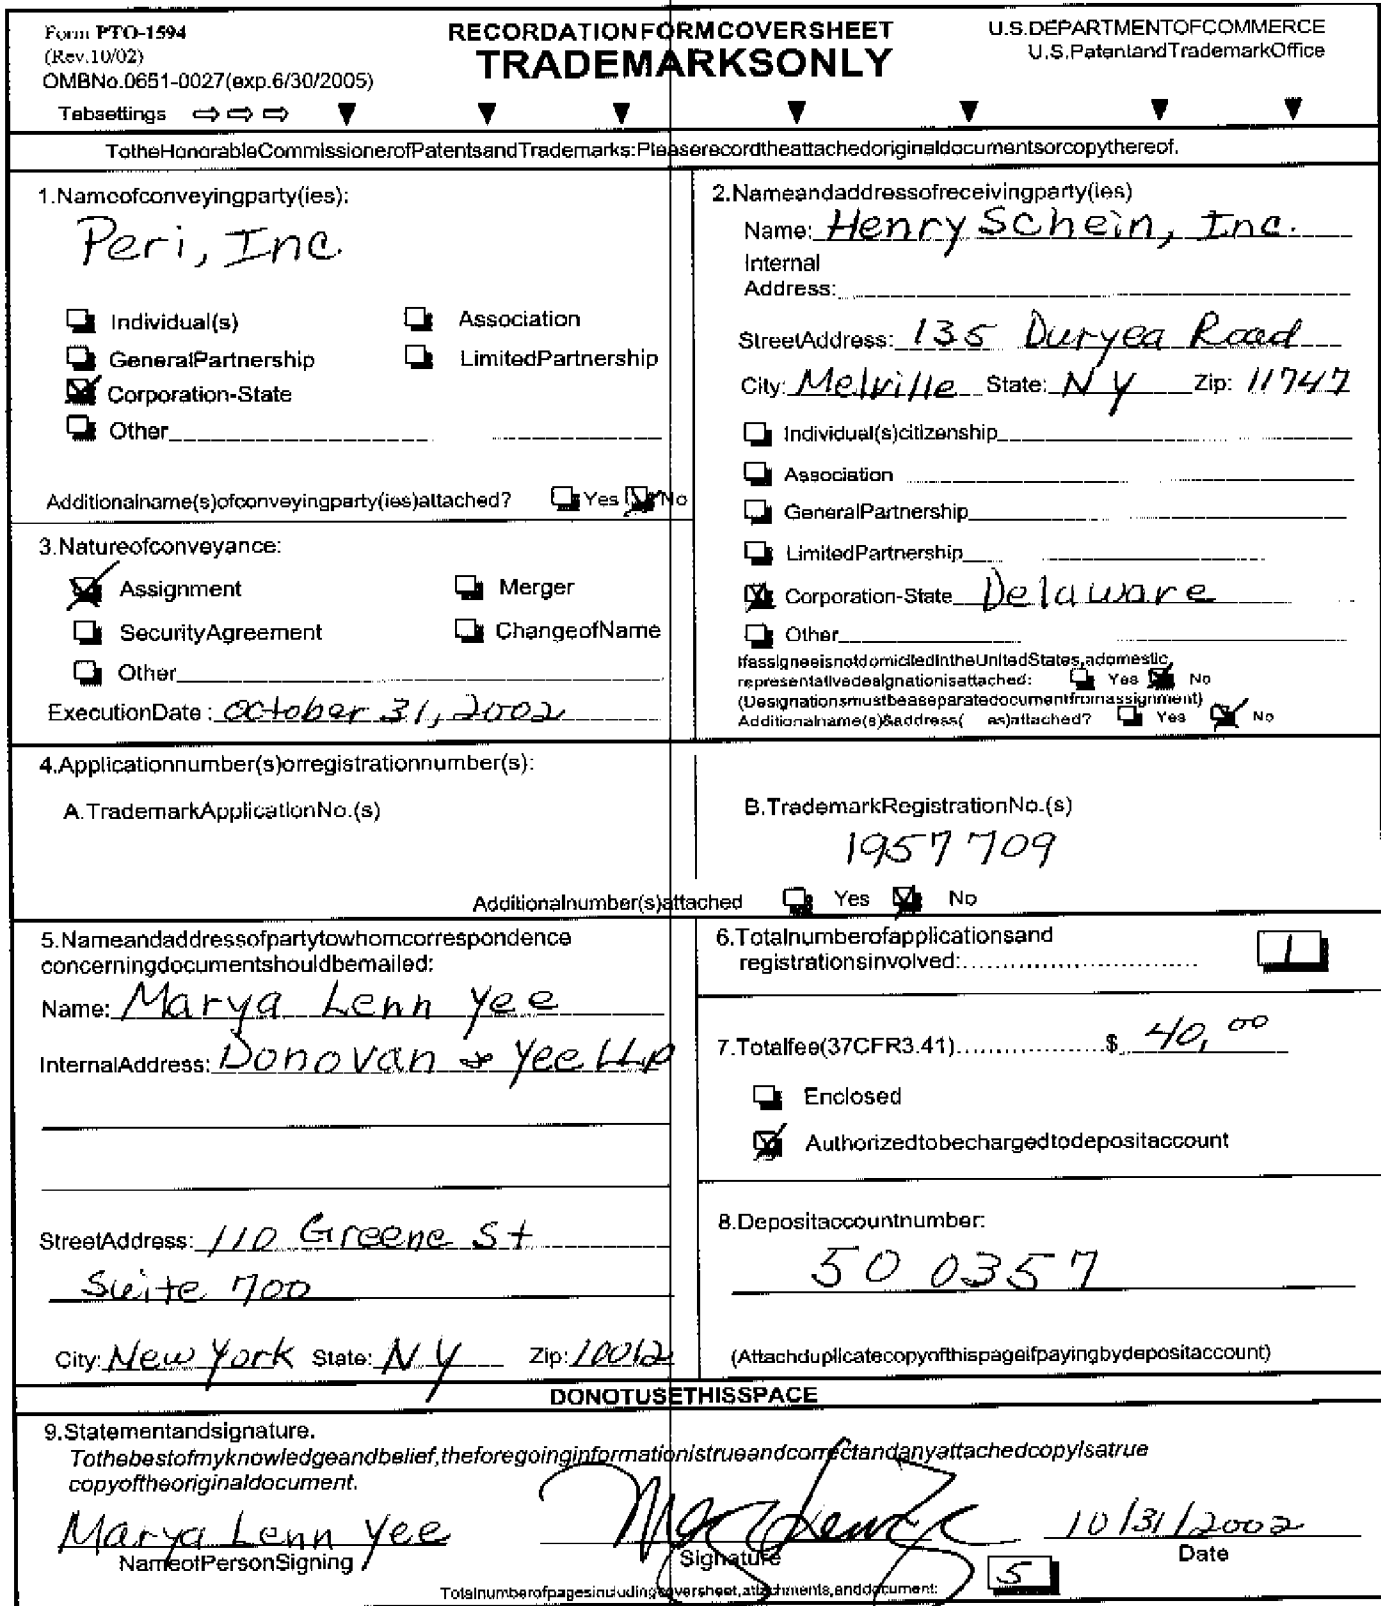 Form PTO-1594
(Rev.10/02)
OMBNo.0651-0027(exp.6/30/2005)
RECORDATIONFORMCOVERSHEET
TRADEMARKSONLY
U.S.DEPARTMENTOFCOMMERCE
U.S.PatentandTrademarkOffice
Tabsettings ⇨ ⇨ ⇨ ▼ ▼ ▼ ▼ ▼ ▼ ▼
TotheHonorableCommissionerofPatentsandTrademarks:Pleaserecordtheattachedoriginaldocumentsorcopythereof.
1.Nameofconveyingparty(ies):
Peri, Inc.
Individual(s) Association
GeneralPartnership LimitedPartnership
Corporation-State
Other
Additionalname(s)ofconveyingparty(ies)attached? Yes No
2.Nameandaddressofreceivingparty(ies)
Name: Henry Schein, Inc.
Internal
Address:
StreetAddress: 135 Duryea Road
City: Melville State: NY Zip: 11747
Individual(s)citizenship
Association
GeneralPartnership
LimitedPartnership
Corporation-State Delaware
Other
IfassigneeisnotdomiciledintheUnitedStates,adomestic
representativedesignationisattached: Yes No
(Designationsmustbeaseparatedocumentfromassignment)
Additionalname(s)&address( es)attached? Yes No
3.Natureofconveyance:
Assignment Merger
SecurityAgreement ChangeofName
Other
ExecutionDate: October 31, 2002
4.Applicationnumber(s)orregistrationnumber(s):
A.TrademarkApplicationNo.(s)
B.TrademarkRegistrationNo.(s)
1957709
Additionalnumber(s)attached Yes No
5.Nameandaddressofpartytowhomcorrespondence
concerningdocumentshouldbemailed:
Name: Marya Lenn Yee
InternalAddress: Donovan & Yee LLP
StreetAddress: 110 Greene St
Suite 700
City: New York State: NY Zip: 10012
6.Totalnumberofapplicationsand
registrationsinvolved:............................ 1
7.Totalfee(37CFR3.41).................$ 40.00
Enclosed
Authorizedtobechargedtodepositaccount
8.Depositaccountnumber:
50 0357
(Attachduplicatecopyofthispageifpayingbydepositaccount)
DONOTUSETHISSPACE
9.Statementandsignature.
Tothebestofmyknowledgeandbelief,theforegoinginformationistrueandcorrectandanyattachedcopyisatrue
copyoftheoriginaldocument.
Marya Lenn Yee 10/31/2002
NameofPersonSigning Signature Date
Totalnumberofpagesincludingcoversheet,attachments,anddocument: 5